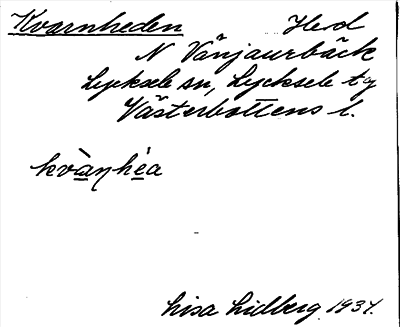 Kvarnheden Hed
N Vänjaurbäck
Lycksele sn, Lycksele tg
Västerbottens l.
kvàṇhéa
Lisa Lidberg 1934.